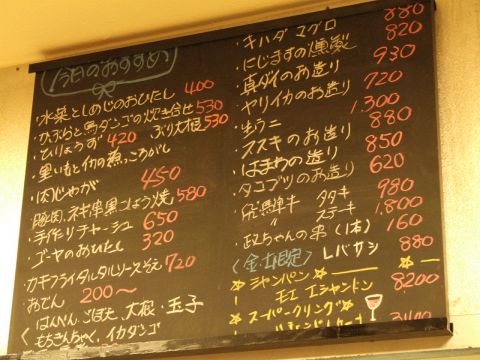 今日のおすすめ
・水菜としめじのおひたし 400
・かぶらと鴨ダンゴの炊き合せ 530
・ひりょうず 420 ぶり大根 530
・里いもとイカの煮っころがし
・肉じゃが 450
・豚肉、ネギ串黒こしょう焼 580
・手作りチャーシュー 650
・ゴーヤのおひたし 320
・カキフライタルタルソースそえ 720
・おでん 200〜
はんぺん、ごぼ天、大根・玉子
もちきんちゃく、イカダンゴ
・キハダマグロ 880
・にじますの燻製 820
・真ダイのお造り 930
・ヤリイカのお造り 720
・生ウニ 1,300
・スズキのお造り 880
・はまちの造り 850
・タコブツのお造り 620
・飛騨牛 タタキ 980
〃 ステーキ 1,800
・政ちゃんの串(1本) 160
〈金・土限定〉 レバサシ 880
シャンパン
モエ エ シャンドン 8200
スーパークリング